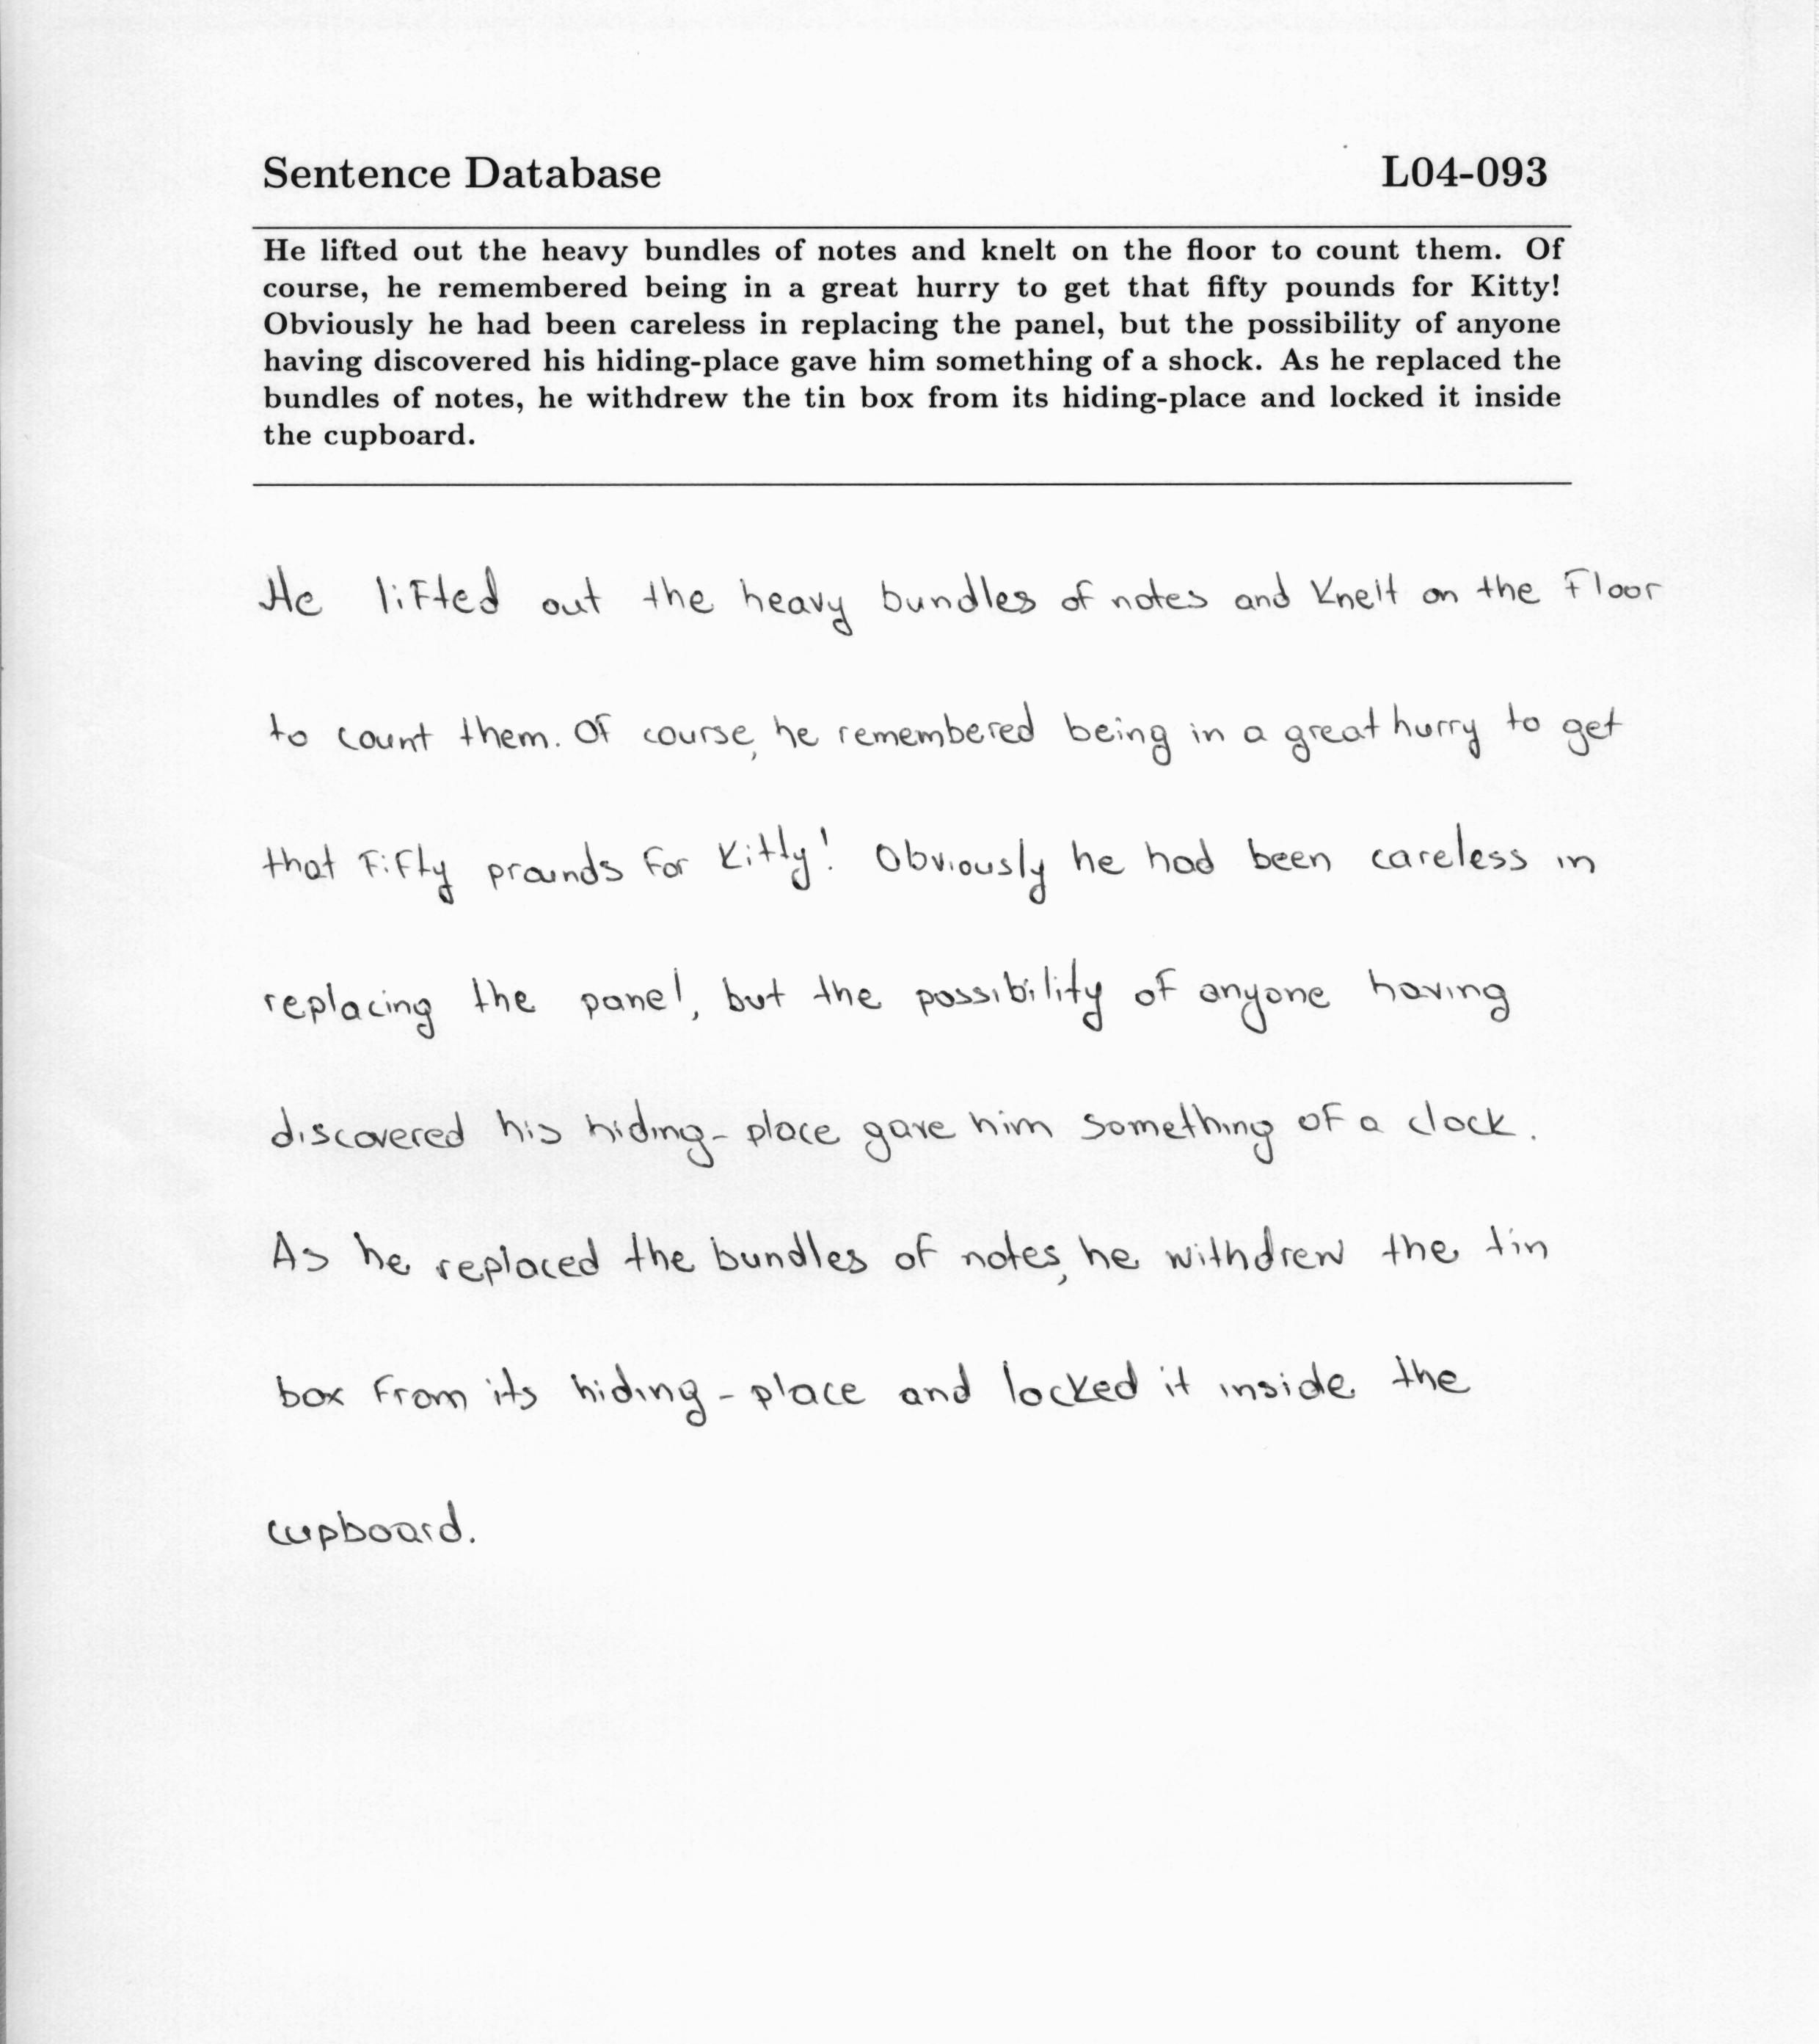 Sentence Database L04-093
He lifted out the heavy bundles of notes and knelt on the floor to count them. Of
course, he remembered being in a great hurry to get that fifty pounds for Kitty!
Obviously he had been careless in replacing the panel, but the possibility of anyone
having discovered his hiding-place gave him something of a shock. As he replaced the
bundles of notes, he withdrew the tin box from its hiding-place and locked it inside
the cupboard.
He lifted out the heavy bundles of notes and knelt on the floor
to count them. Of course, he remembered being in a great hurry to get
that fifty prounds for Kitty! Obviously he had been careless in
replacing the panel, but the possibility of anyone having
discovered his hiding-place gave him something of a clock.
As he replaced the bundles of notes, he withdrew the tin
box from its hiding-place and locked it inside the
cupboard.